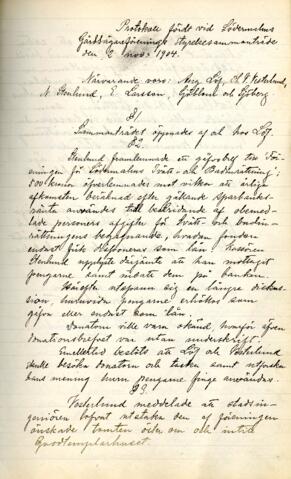 Protokoll fördt vid Södermalms
Gårdsägareförenings styrelsesammanträde
den 2 nov. 1904.
Närvarande voro: Aug. Löf, A. F. Vesterlund,
N. Stenlund, E. Larsson, Sjöblom och Sjöberg
§1
Sammanträdet öppnades af ol hos Löf.
§2.
Stenlund framlemnade ett gifvobref till För-
eningen för Södermalms Tvätt- och Badinrättning;
500 kronor öfverlemnades mot vilkor att årliga
afkomsten beräknad efter gällande sparbanks-
ränta användes till bekridande af obemed-
lade personers afgifter för tvätt- och badin-
rättningens begagnande, hvadan fonden
endast fick deponeras som lån. Kassören
Stenlund upplyste därjämte att han mottagit
pengarne samt insatt dem på banken.
Härefter utspann sig en längre disku-
ssion, huruvida pengarne erhölles som
gåfva eller endast som lån.
Donatorn ville vara okänd, hvarför äfven
donationsbrefvet var utan underskrift.
Emellertid beslöts att Löf och Vesterlund
skulle besöka donatorn och tacka samt utforska
hans mening huru pengarne finge användas.
§3.
Vesterlund meddelade att stadsin-
geniören lofvat utstaka den af föreningen
önskade tomten öster om och intill
Goodtemplarhuset.